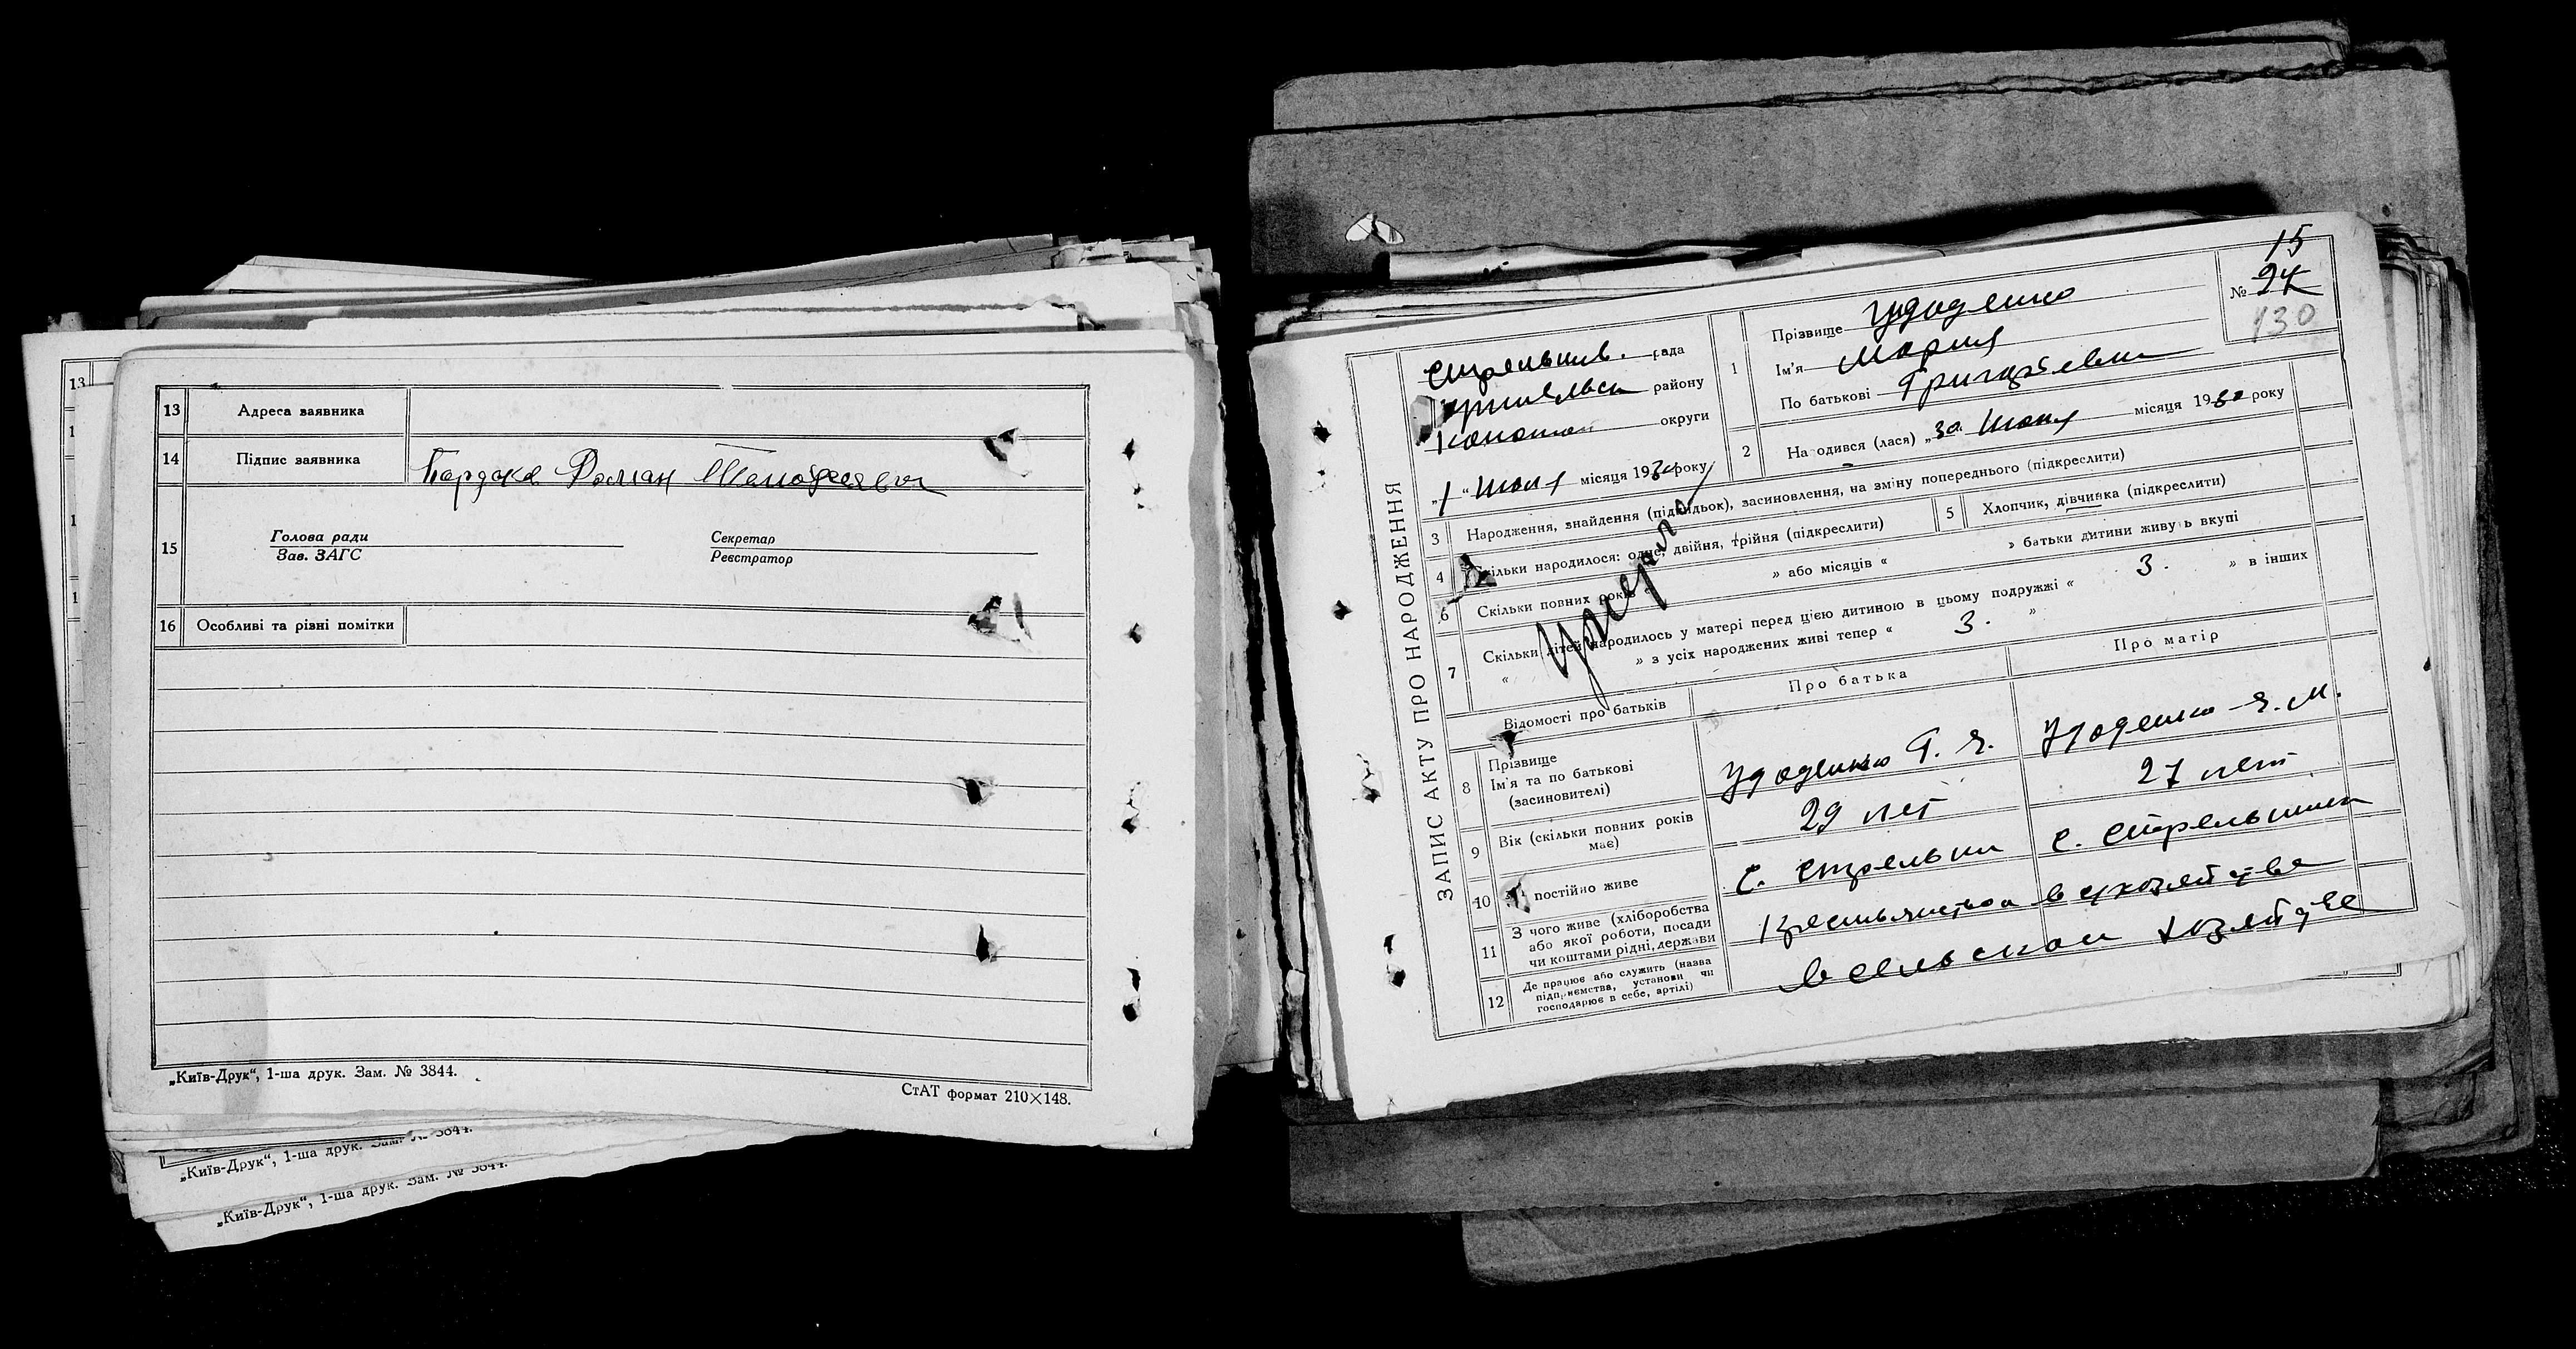 13 Адреса заявника
14 Підпис заявника
Роман
15 Голова ради Секретар
Зав. ЗАГС Реєстратор
16 Особливі та різні помітки
„Київ-Друк“, 1-ша друк. Зам. № 3844.
СтАТ формат 210×148.
„Київ-Друк“, 1-ша друк. Зам. № 3844.
„Київ-Друк“, 1-ша друк. Зам. № 3844.
13
ЗАПИС АКТУ ПРО НАРОДЖЕННЯ
рада
району
округи
місяця 19 року
15
№ 94
130
1 Прізвище Удоденко
Ім'я Мария
По батькові Григорьевна
2 На одився (лася) „30 июня місяця 1930 року
3 Народження, знайдення (підкидьок), засиновлення, на зміну попереднього (підкреслити)
4 Скільки народилося: одне, двійня, трійня (підкреслити)
5 Хлопчик, дівчинка (підкреслити)
6 Скільки повних років « » або місяців « » батьки дитини живуть вкупі
7 Скільки дітей народилось у матері перед цією дитиною в цьому подружжі « 3. » в інших
« » з усіх народжених живі тепер « 3. »
умерла
Відомості про батьків Про батька Про матір
8 Прізвище
Ім'я та по батькові
(засиновителі)
Удоденко Г. Я. Удоденко Я. М.
9 Вік (скільки повних років
має)
29 лет 27 лет
10 постійно живе
с. с.
11 З чого живе (хліборобства
або якої роботи, посади
чи коштами рідні, держави
12 Де працює або служить (назва
підприємства, установи чи
господарює в себе, артілі)
в сельском хозяйстве